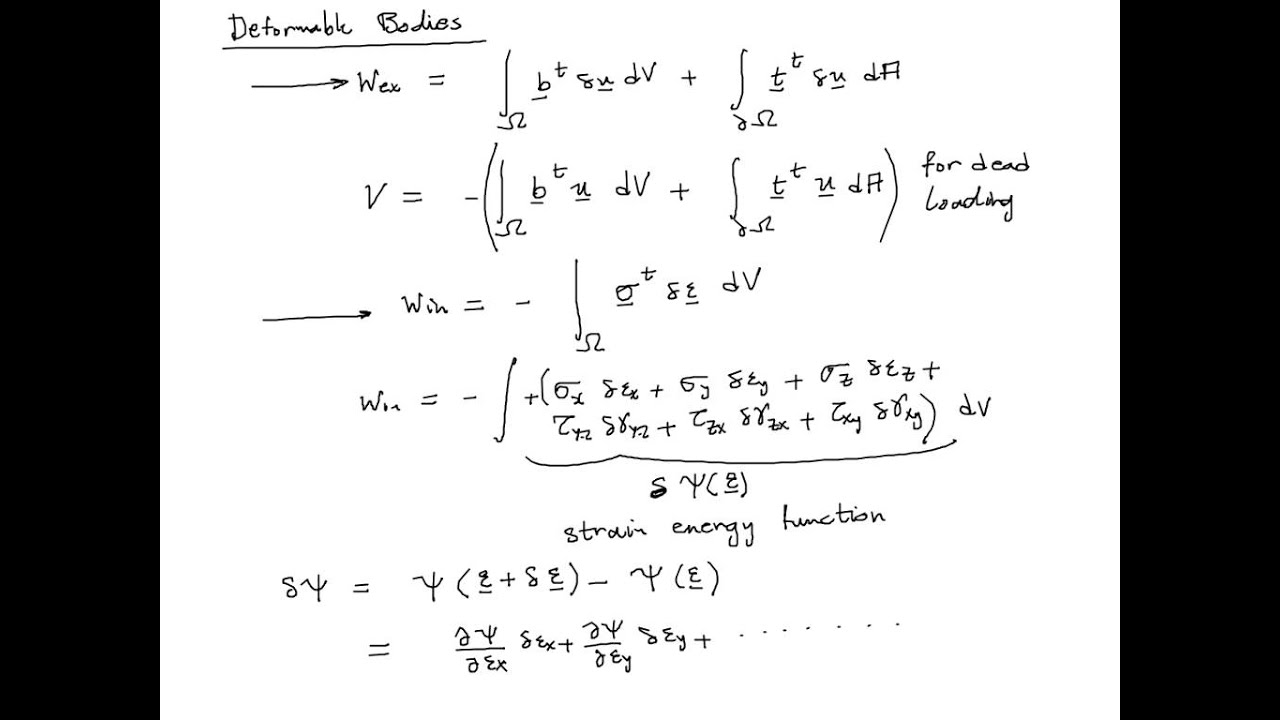 Deformable Bodies
→ Wex = ∫_Ω b^t δu dV + ∫_∂Ω t^t δu dA
V = -(∫_Ω b^t u dV + ∫_∂Ω t^t u dA) for dead loading
→ Win = - ∫_Ω σ^t δε dV
Win = - ∫ +(σx δεx + σy δεy + σz δεz +
τyz δγyz + τzx δγzx + τxy δγxy) dV
δ Ψ(ε)
strain energy function
δΨ = Ψ(ε + δε) - Ψ(ε)
= ∂Ψ/∂εx δεx + ∂Ψ/∂εy δεy + . . . . . . .